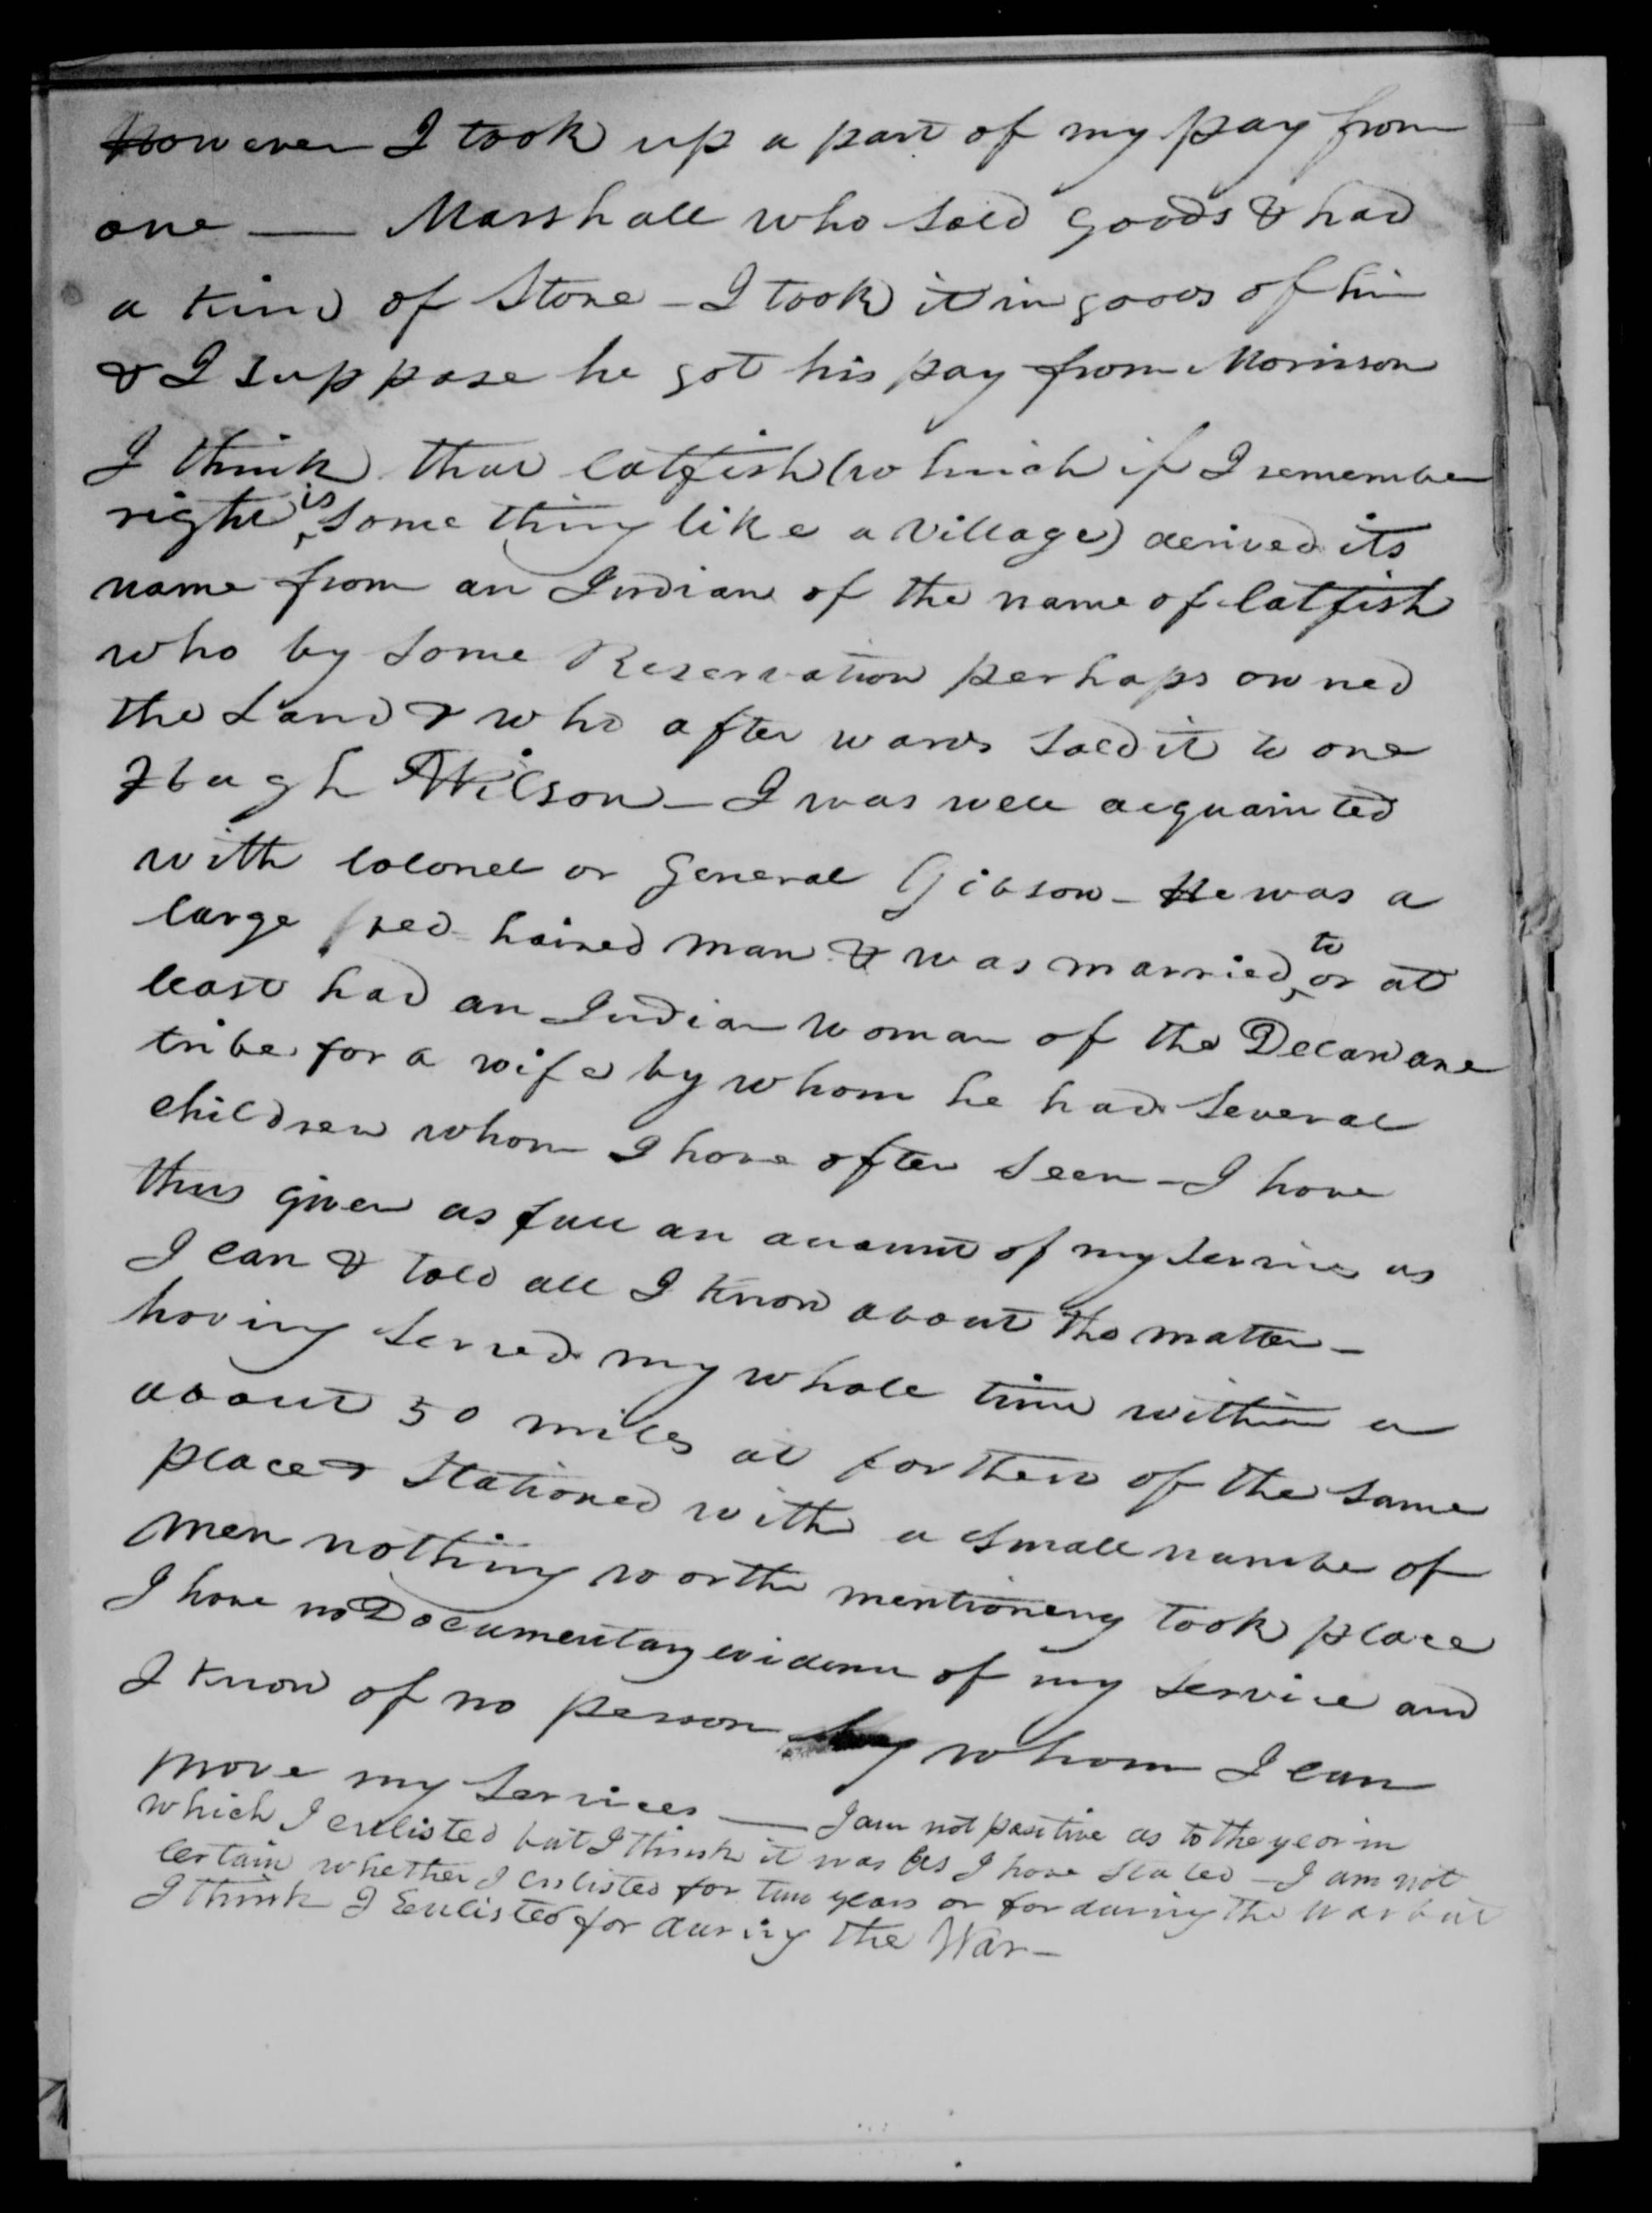 However I took up a part of my pay from
one — Marshall who sold goods & had
a kind of Store - I took it in goods of him
& I suppose he got his pay from Morrison
I think that Catfish (which if I remember
right is some thing like a village) derived its
name from an Indian of the name of Catfish
who by some Reservation perhaps owned
the Land & who after wards sold it to one
Hugh Wilson - I was well acquainted
with Colonel or General Gibson - He was a
large red haired man & was married to or at
least had an Indian woman of the Delaware
tribe for a wife by whom he had several
children whom I have often seen - I have
thus given as full an account of my services as
I can & told all I know about the matter -
having served my whole time within a
about 50 miles at farthest of the same
place & Stationed with a small number of
men nothing worth mentioning took place
I have no Documentary evidence of my service and
I know of no person by whom I can
prove my services — I am not positive as to the year in
which I enlisted but I think it was as I have stated - I am not
certain whether I enlisted for two years or for during the War but
I think I Enlisted for during the War -